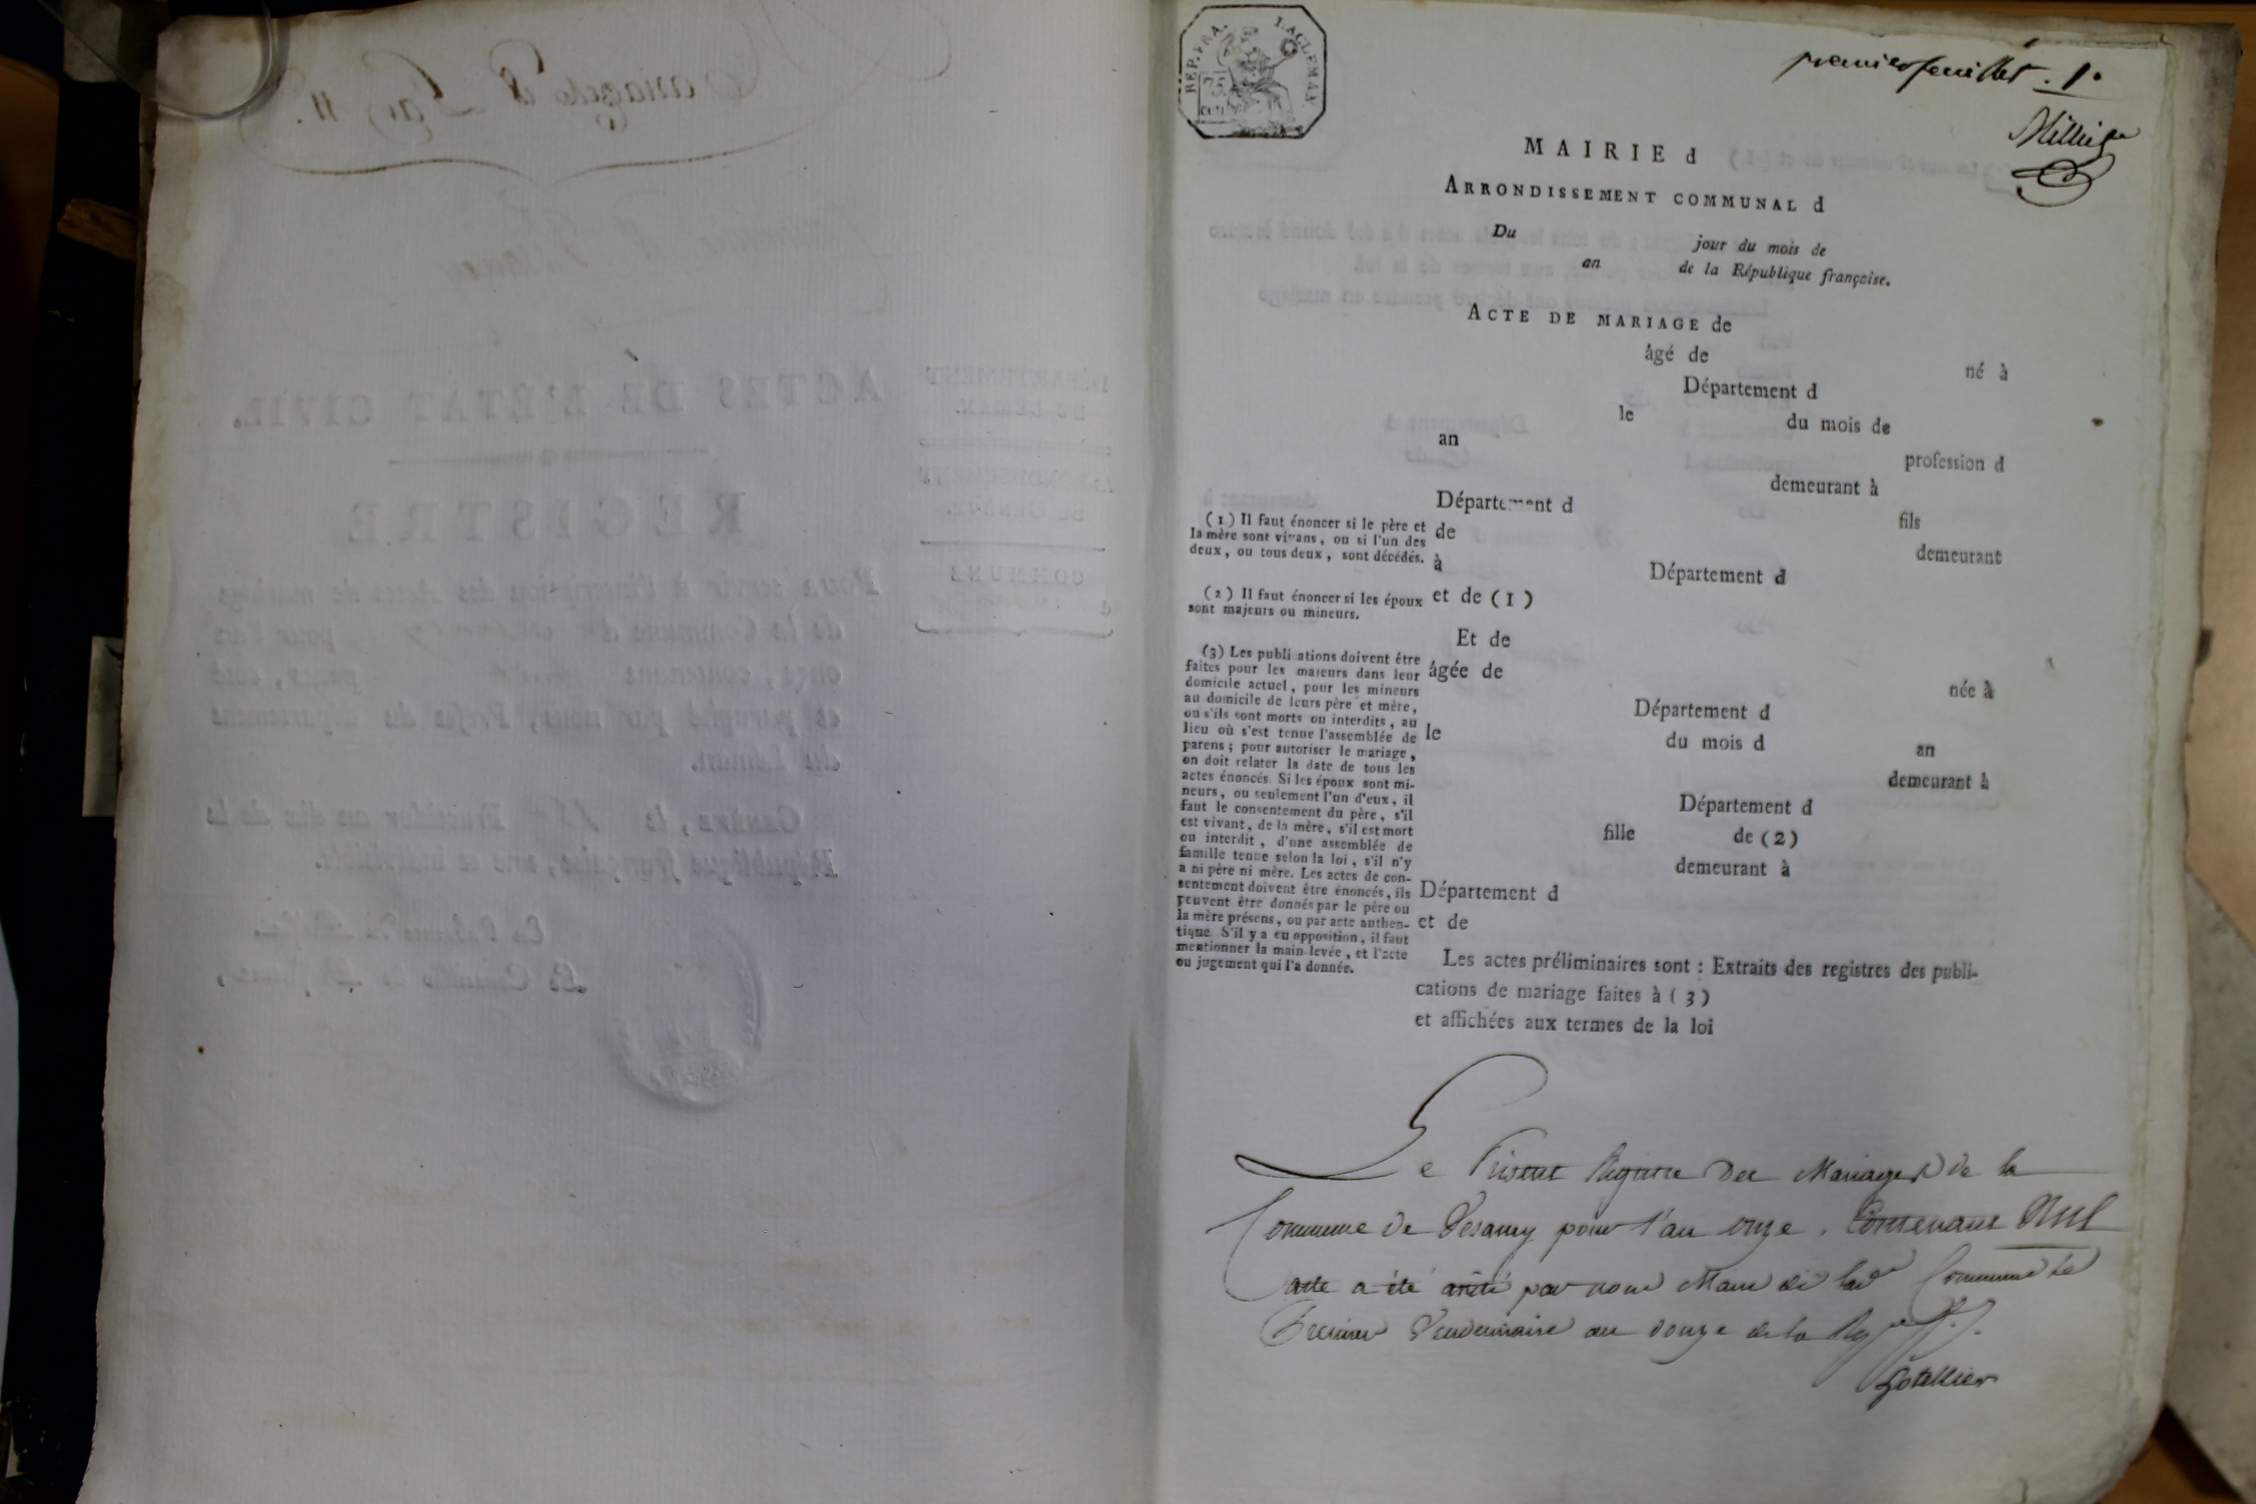 REP. FRA.
LAC LEMAN.
75.
CENT.
premier feuillet . 1.
MAIRIE d
ARRONDISSEMENT COMMUNAL d
Du jour du mois de
an de la République française.
ACTE DE MARIAGE de
âgé de né à
Département d
le du mois de
an
profession d
demeurant à
Département d
fils
de
demeurant
à Département d
et de (1)
Et de
âgée de
née à
Département d
le du mois d an
demeurant à
Département d
fille de (2)
demeurant à
Département d
et de
Les actes préliminaires sont : Extraits des registres des publi-
cations de mariage faites à (3)
et affichées aux termes de la loi
(1) Il faut énoncer si le père et
la mère sont vivans, ou si l'un des
deux, ou tous deux, sont décédés.
(2) Il faut énoncer si les époux
sont majeurs ou mineurs.
(3) Les publications doivent être
faites pour les majeurs dans leur
domicile actuel, pour les mineurs
au domicile de leurs père et mère,
ou s'ils sont morts ou interdits, au
lieu où s'est tenue l'assemblée de
parens ; pour autoriser le mariage,
on doit relater la date de tous les
actes énoncés. Si les époux sont mi-
neurs, ou seulement l'un d'eux, il
faut le consentement du père, s'il
est vivant, de la mère, s'il est mort
ou interdit, d'une assemblée de
famille tenue selon la loi, s'il n'y
a ni père ni mère. Les actes de con-
sentement doivent être énoncés, ils
peuvent être donnés par le père ou
la mère présens, ou par acte authen-
tique. S'il y a eu opposition, il faut
mentionner la main-levée, et l'acte
ou jugement qui l'a donnée.
Le Present Registre des Mariages de la
Commune de Vesancy pour l'an onze, Contenant Nul
acte a été arêté par nous Maire de lad.e Commune le
Premier Vendemiaire an douze de la
Mariages de l'an 11.
ACTES DE L'ÉTAT CIVIL.
REGISTRE
POUR servir à l'inscription des Actes de mariage
de la Commune d pour l'an
onze, contenant pages, coté
et paraphé par nous, Préfet du département
du Léman.
GENÈVE, le 15 Messidor an dix de la
République française, une et indivisible.
DÉPARTEMENT
DU LÉMAN.
ARRONDISSEMENT
DE GENÈVE.
COMMUNE
d